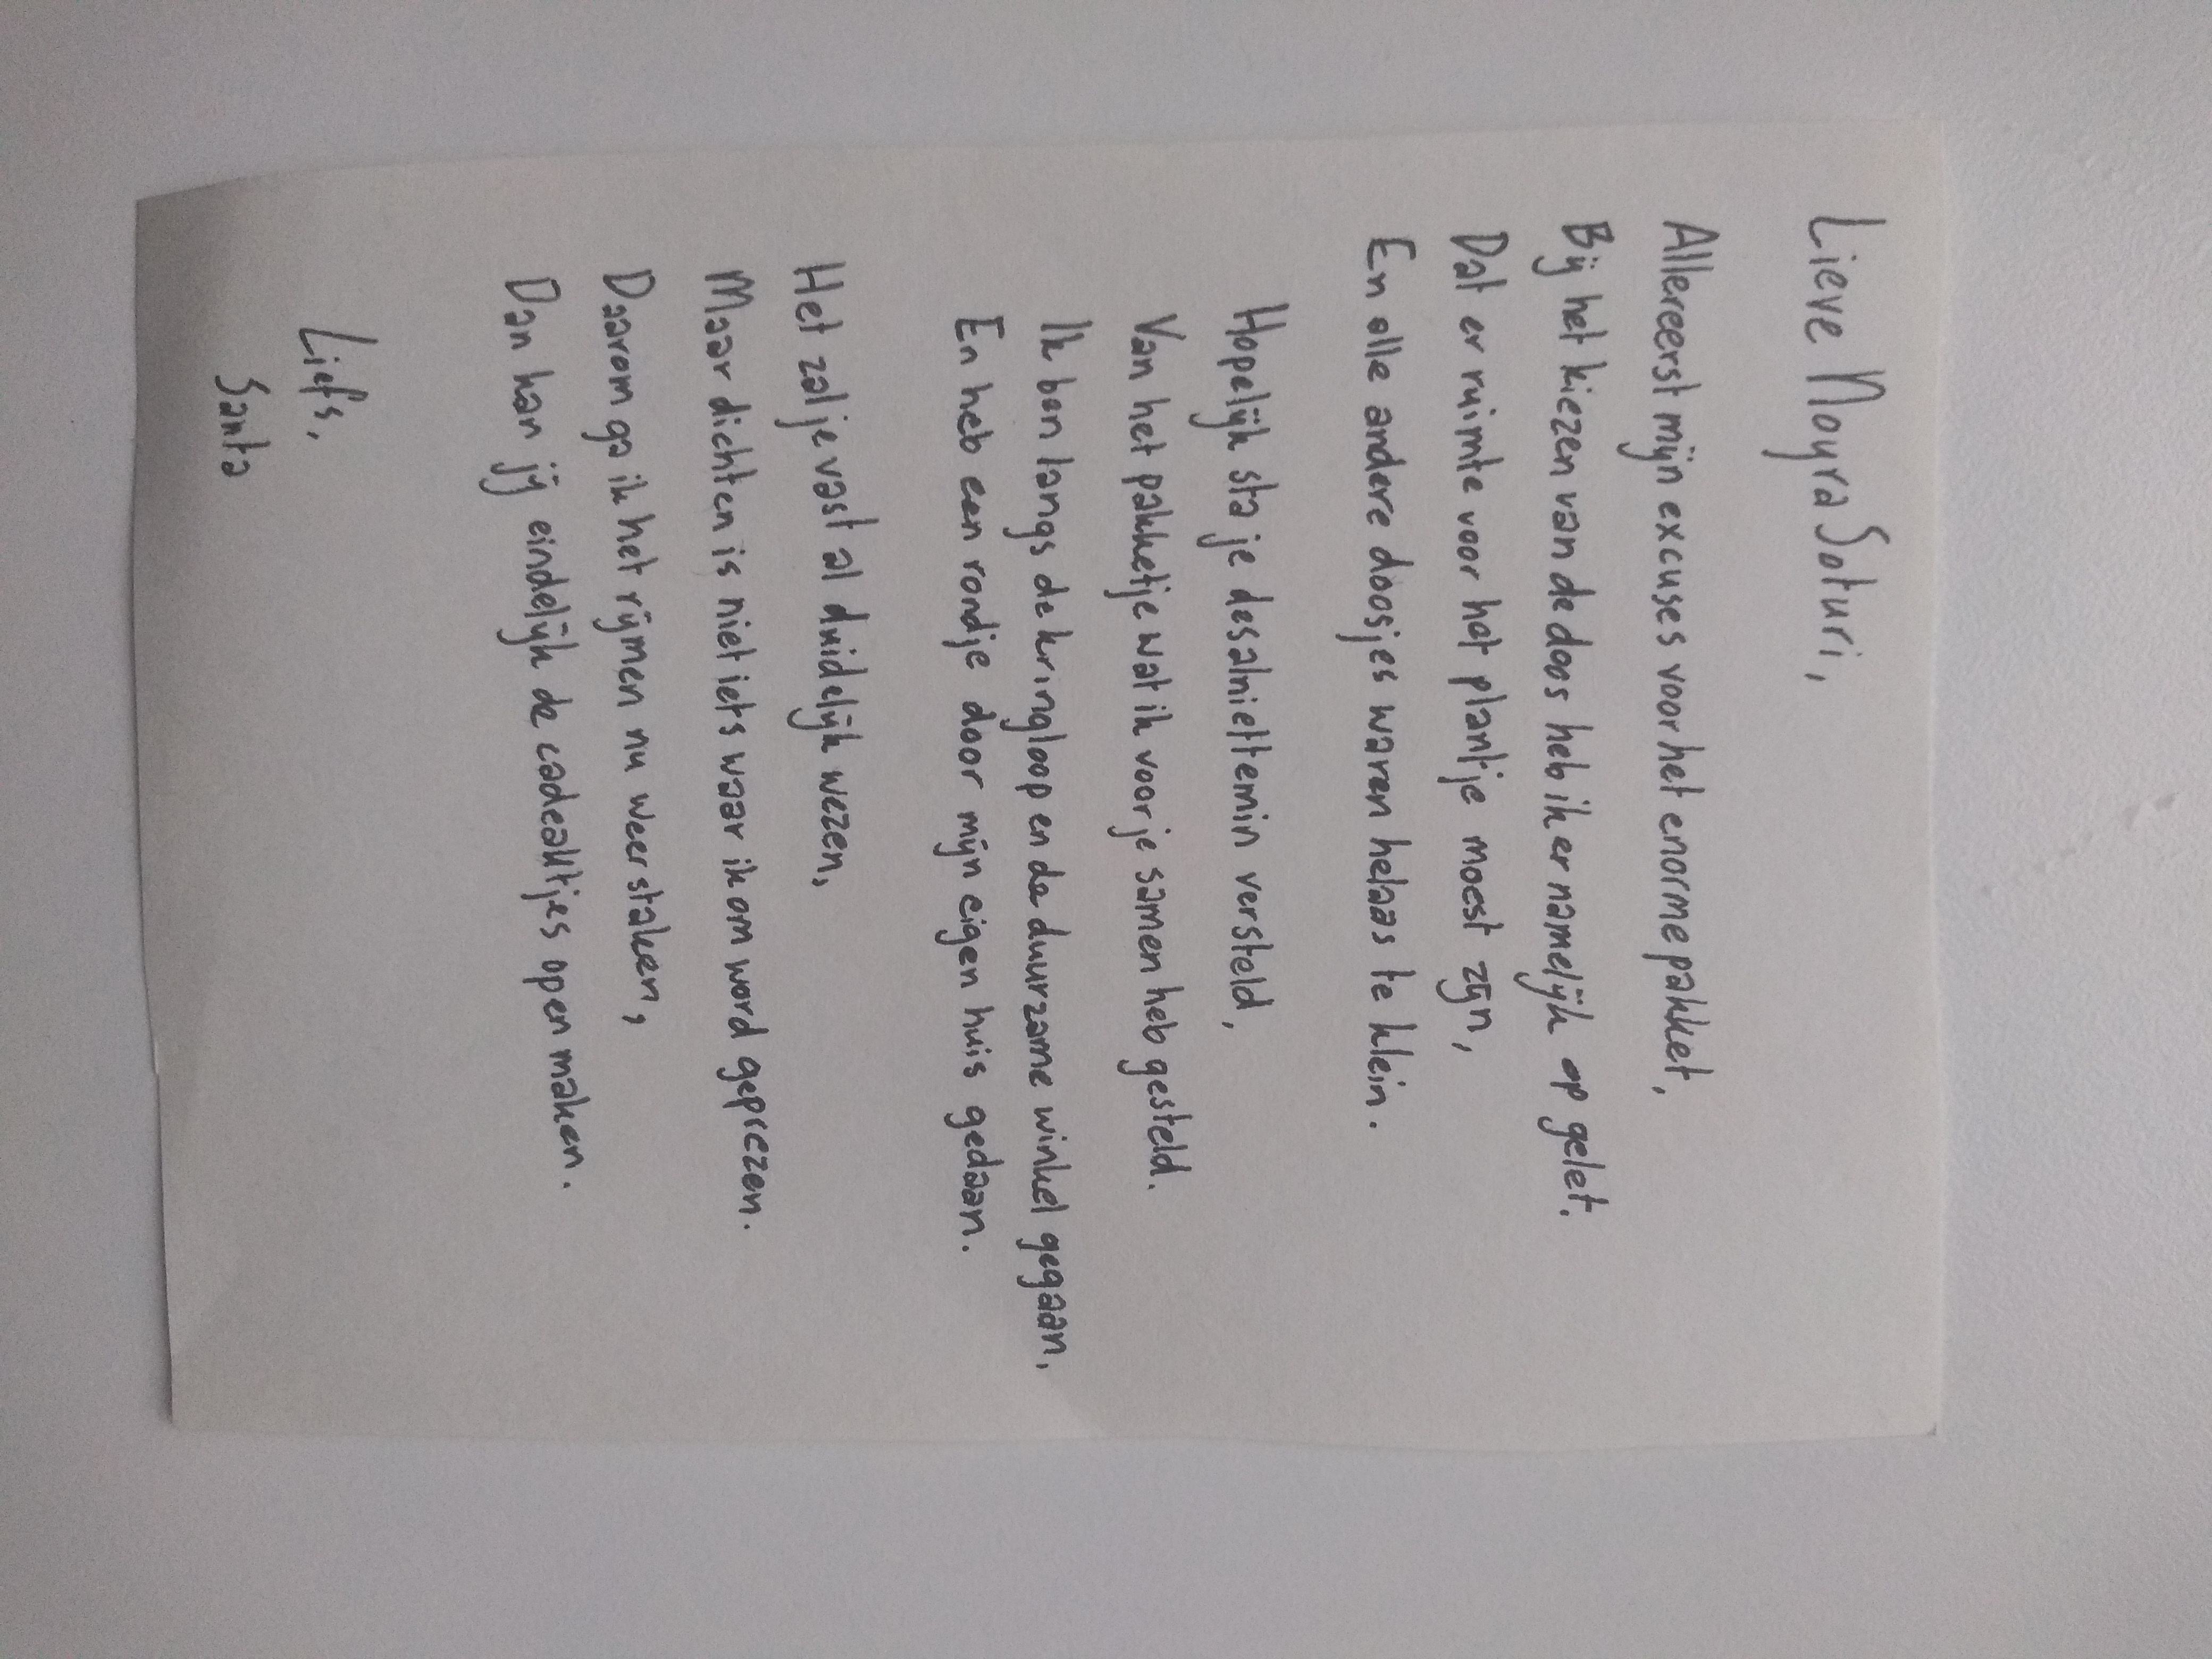 Lieve Moyra Soturi,
Allereerst mijn excuses voor het enorme pakket,
Bij het kiezen van de doos heb ik er namelijk op gelet.
Dat er ruimte voor het plantje moest zijn,
En alle andere doosjes waren helaas te klein.
Hopelijk sta je desalniettemin versteld,
Van het pakketje wat ik voor je samen heb gesteld.
Ik ben langs de kringloop en de duurzame winkel gegaan,
En heb een rondje door mijn eigen huis gedaan.
Het zal je vast al duidelijk wezen,
Maar dichten is niet iets waar ik om word geprezen.
Daarom ga ik het rijmen nu weer staken,
Dan kan jij eindelijk de cadeautjes open maken.
Liefs,
Santa